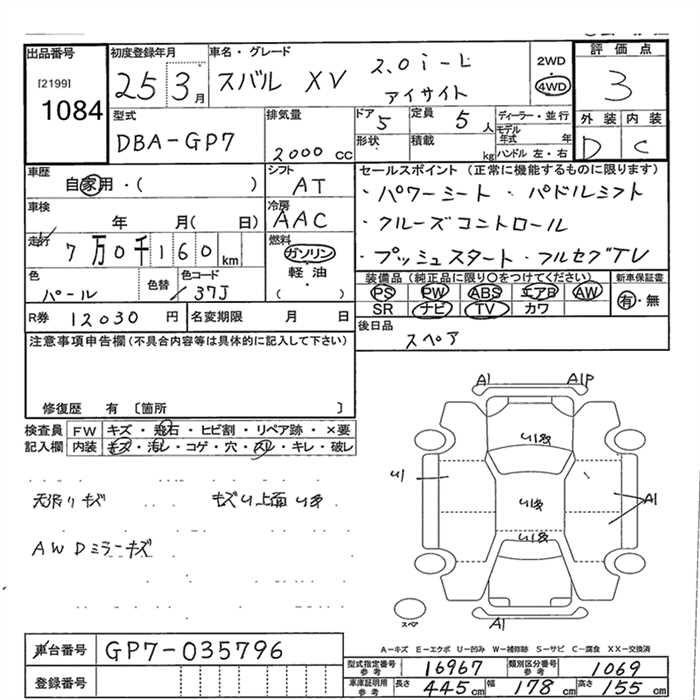 出品番号
[2199]
1084
初度登録年月
25 3月
車名・グレード
スバル XV 2.0i-L
アイサイト
2WD
4WD
評価点
3
外装 内装
D C
型式
DBA-GP7
排気量
2000 cc
ドア 5
形状
定員 5 人
積載 kg
ディーラー・並行
モデル年式 年
ハンドル 左・右
車歴
自家用・( )
シフト
AT
車検
年 月( 日)
冷房
AAC
走行
7万0千160 km
燃料
ガソリン
軽油
( )
色
パール
色替
色コード
37J
R券 12030 円
名変期限 月 日
セールスポイント(正常に機能するものに限ります)
・パワーシート ・パドルシフト
・クルーズコントロール
・プッシュスタート・フルセグTV
装備品(純正品に限り○をつけてください)
PS PW ABS エアB AW
SR ナビ TV カワ
新車保証書
有・無
後日品
スペア
注意事項申告欄(不具合内容等は具体的に記入して下さい)
修復歴 有〔箇所 〕
検査員
記入欄
FW キズ・飛石・ヒビ割・リペア跡・×要
内装 キズ・汚レ・コゲ・穴・スレ・キレ・破レ
天張りキズ
AWDミラーキズ
A1 A1P
U1
A1
スペ
A1
A-キズ E-エクボ U-凹み W-補修跡 S-サビ C-腐食 XX-交換済
車台番号 GP7-035796
登録番号
型式指定番号参考 16967
類別区分番号参考 1069
車庫証明用参考 長さ 445cm 幅 178cm 高さ 155cm